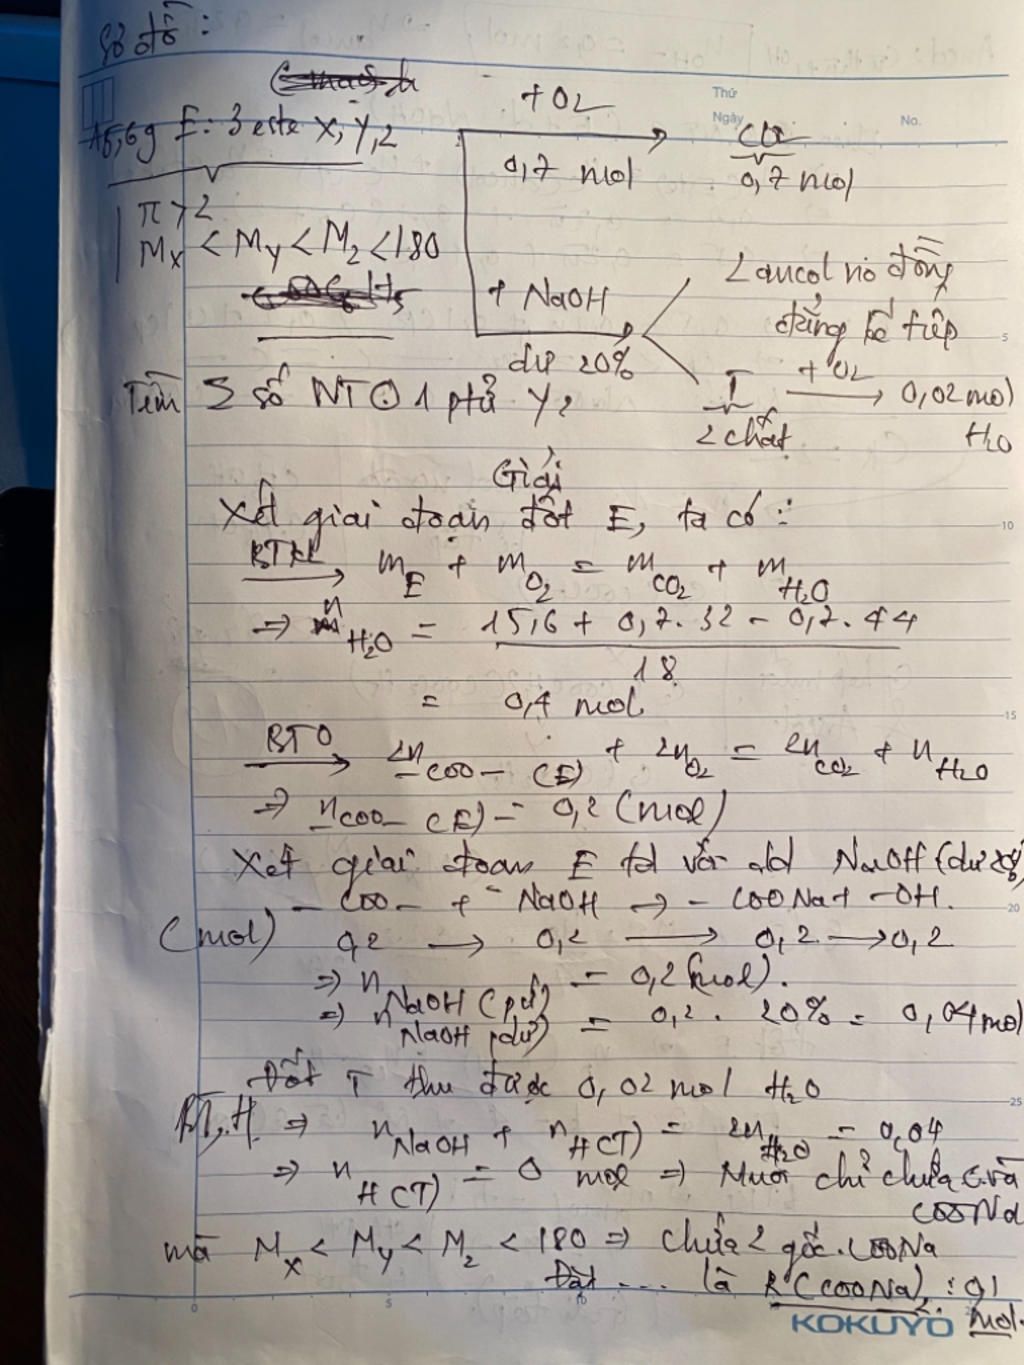 Sơ đồ:
Thứ
Ngày
No.
+O2
15,6g E: 3 este X, Y, Z
0,7 mol
CO2
0,7 mol
π > 2
Mx < My < Mz < 180
2 ancol no đồng
đẳng kế tiếp
+ NaOH
dư 20%
T + O2 → 0,02 mol
H2O
2 chất
Tìm Σ số NT 1 ptử Y?
Giải
Xét giai đoạn đốt E, ta có:
BTKL → mE + mO2 = mCO2 + mH2O
⇒ nH2O = (15,6 + 0,7.32 - 0,7.44) / 18
= 0,4 mol
BTO → 2n-COO- (E) + 2nO2 = 2nCO2 + nH2O
⇒ n-COO- (E) = 0,2 (mol)
Xét giai đoạn E td với dd NaOH (dư 20%)
- COO - + NaOH → - COONa + -OH.
(mol) 0,2 → 0,2 → 0,2 → 0,2
⇒ nNaOH (pứ) = 0,2 (mol).
⇒ nNaOH (dư) = 0,2 . 20% = 0,04 mol
Đốt T thu được 0,02 mol H2O
BT.H ⇒ nNaOH + nH(T) = 2nH2O = 0,04
⇒ nH(T) = 0 mol ⇒ Muối chỉ chứa C và
COONa
mà Mx < My < Mz < 180 ⇒ chứa 2 gốc COONa
Đặt ... là R(COONa)2 : 0,1
mol.
5
10
15
20
25
0
5
10
KOKUYO